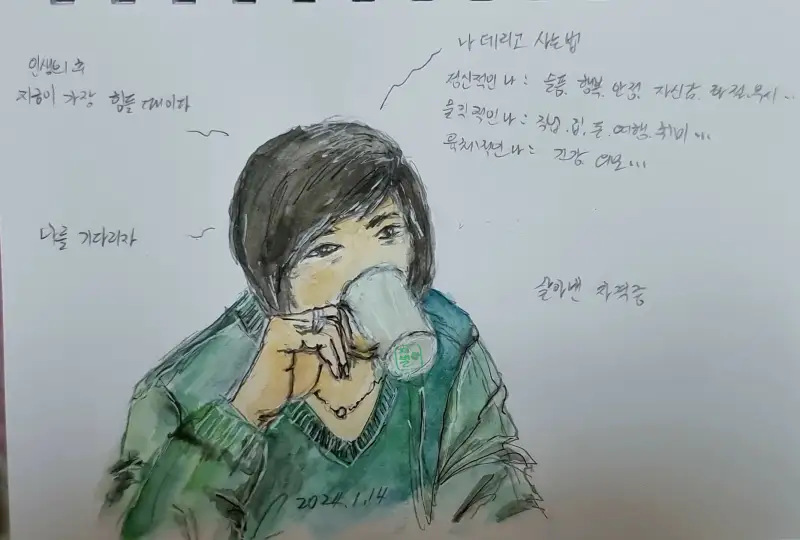 인생의 추
지금이 가장 힘들 때이다
나를 기다리자
나 데리고 사는 법
정신적인 나 : 슬픔. 행복. 안정. 자신감. 좌절. 욕시...
물직적인 나 : 직업. 집. 돈. 여행. 취미...
육체적인 나 : 건강. 외모...
살아낸 자격증
2024.1.14